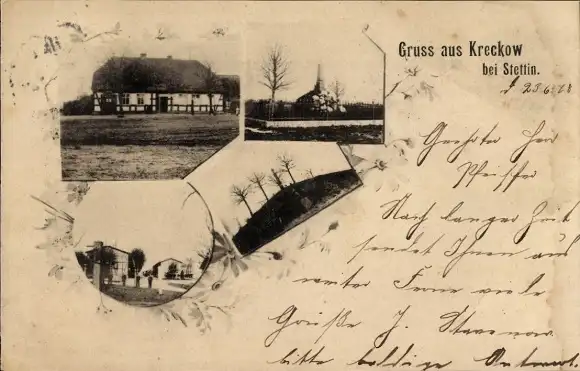 Gruss aus Kreckow
bei Stettin.
Geehrter Herr
Pfeiffer
Nach langer Zeit
sendet Ihnen aus
weiter Ferne viele
Grüße J.
bitte baldige Antwort.